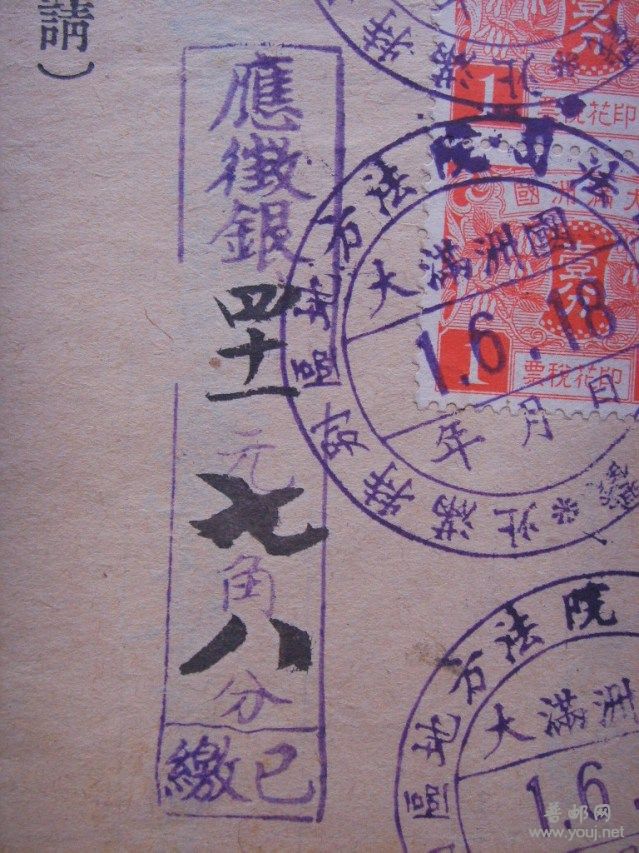 請）
應徵銀四十一元七角八分
已繳
大滿洲國
1.6.18
年月日
北滿特別區地方法院
大滿洲國
壹分
1
印花稅票
1
印花稅票
地方法院
大滿洲
1.6.
普邮网
www.youj.net